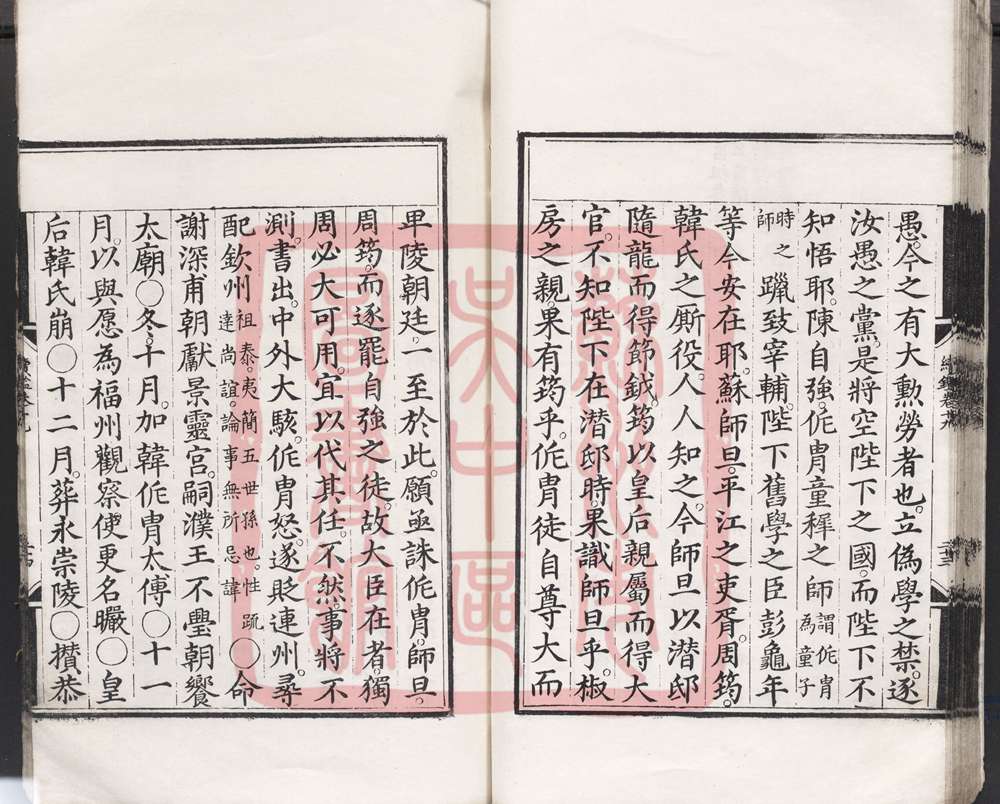 愚。今之有大勲勞者也。立偽學之禁。逐
汝愚之黨。是將空陛下之國。而陛下不
知悟耶。陳自強。侂胄童穉之師謂侂胄為童子
時之師躐致宰輔。陛下舊學之臣彭龜年
等今安在耶。蘇師旦。平江之吏胥。周筠。
韓氏之厮役。人人知之。今師旦以潜邸
隨龍而得節鉞。筠以皇后親屬而得大
官。不知陛下在潜邸時。果識師旦乎。椒
房之親。果有筠乎。侂胄徒自尊大而
卑陵朝廷。一至於此。願亟誅侂胄。師旦。
周筠。而逐罷自強之徒。故大臣在者獨
周必大可用。宜以代其任。不然。事將不
測。書出。中外大駭。侂胄怒。遂貶連州。尋
配欽州祖泰。夷簡五世孫也。性疏達尚誼。論事無所忌諱〇命
謝深甫朝獻景靈宮。嗣濮王不璺朝饗
太廟〇冬。十月。加韓侂胄太傅〇十一
月。以與愿為福州觀察使更名曮〇皇
后韓氏崩〇十二月。葬永崇陵〇攅恭